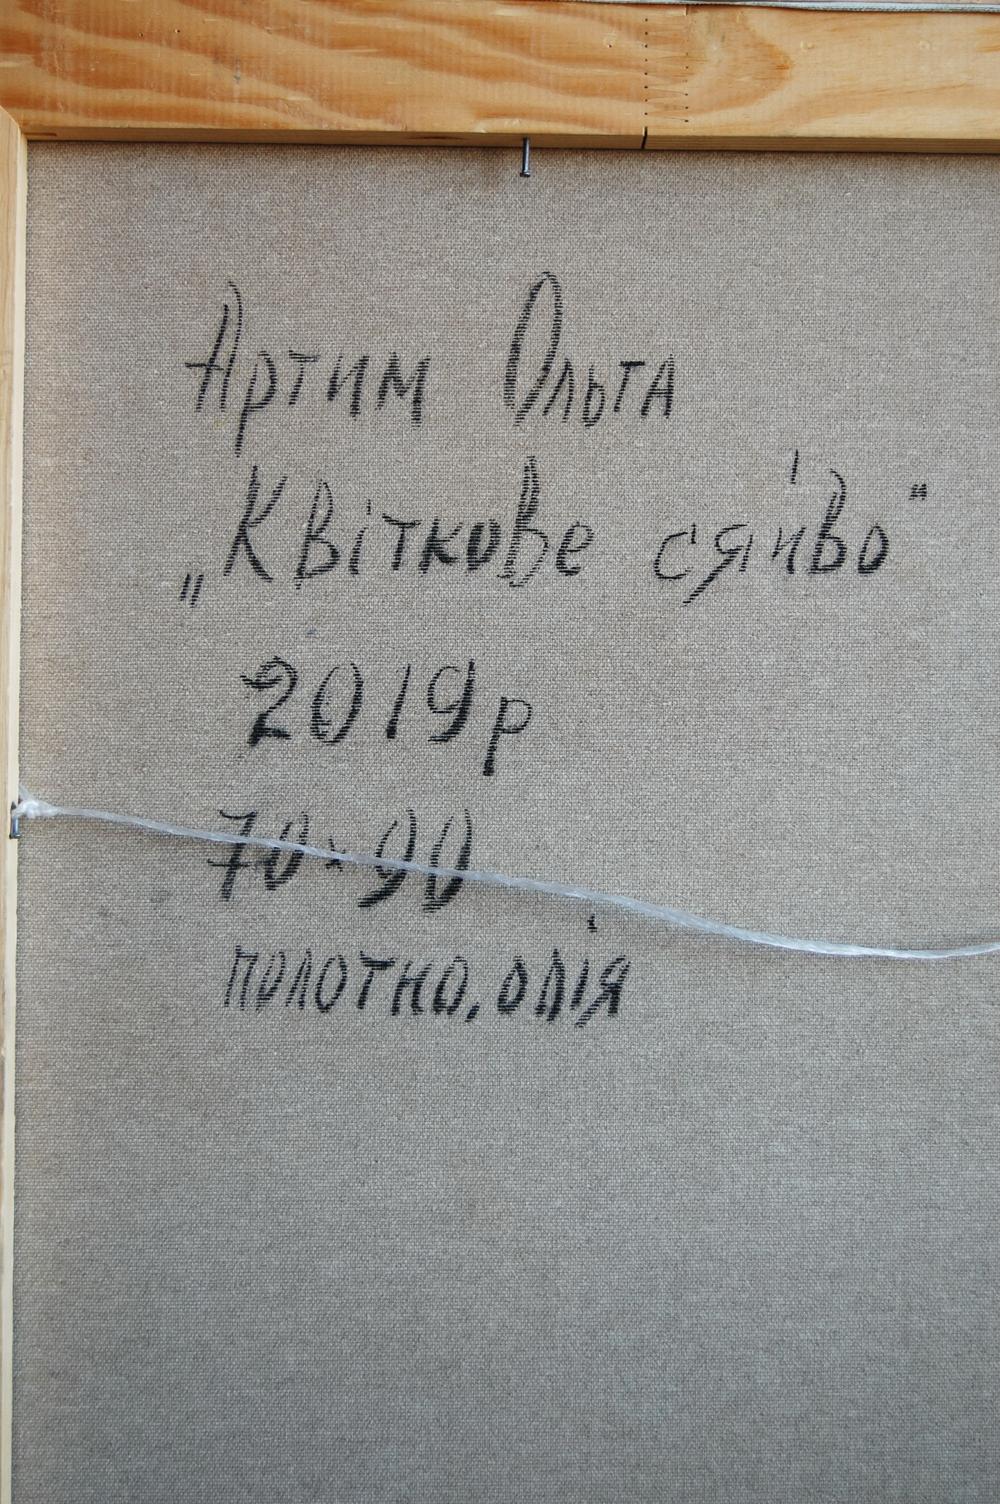 Артим Ольга
„Квіткове сяйво"
2019р
70×90
полотно, олія